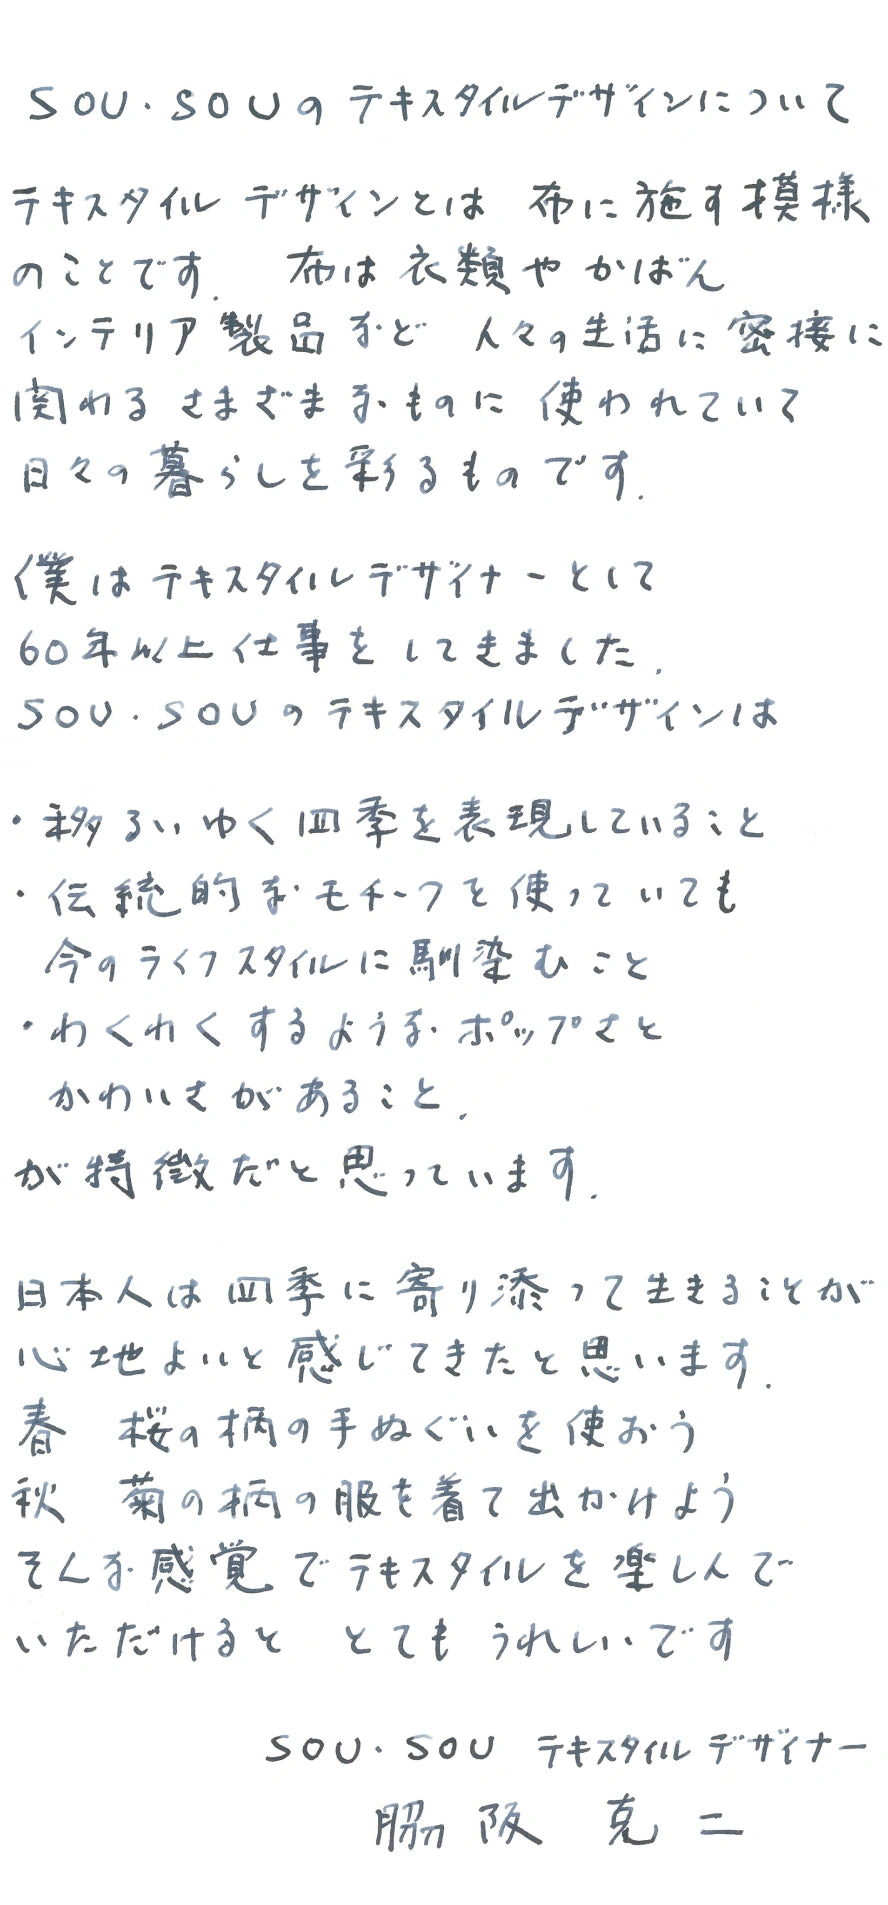 SOU・SOUのテキスタイルデザインについて
テキスタイルデザインとは 布に施す模様
のことです. 布は衣類やかばん
インテリア製品など 人々の生活に密接に
関わるさまざまなものに 使われていて
日々の暮らしを彩るものです.
僕はテキスタイルデザイナーとして
60年以上仕事をしてきました.
SOU・SOUのテキスタイルデザインは
・移ろいゆく四季を表現していること
・伝統的なモチーフを使っていても
今のライフスタイルに馴染むこと
・わくわくするようなポップさと
かわいさがあること.
が特徴だと思っています.
日本人は四季に寄り添って生きることが
心地よいと感じてきたと思います.
春 桜の柄の手ぬぐいを使おう
秋 菊の柄の服を着て出かけよう
そんな感覚でテキスタイルを楽しんで
いただけると とてもうれしいです
SOU・SOU テキスタイルデザイナー
脇阪 克二